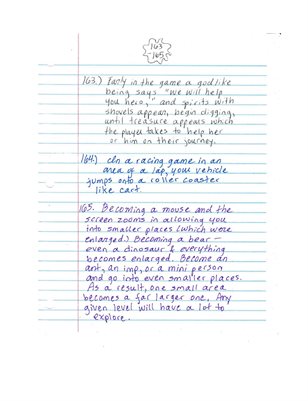 163
165
163.) Early in the game a godlike
being says "We will help
you hero," and spirits with
shovels appear, begin digging,
until treasure appears which
the player takes to help her
or him on their journey.
164.) In a racing game in an
area of a lap, your vehicle
jumps onto a roller coaster
like cart
165. Becoming a mouse and the
screen zooms in allowing you
into smaller places (which were
enlarged.) Becoming a bear –
even a dinosaur & everything
becomes enlarged. Become an
ant, an imp, or a mini person
and go into even smaller places.
As a result, one small area
becomes a far larger one. Any
given level will have a lot to
explore.